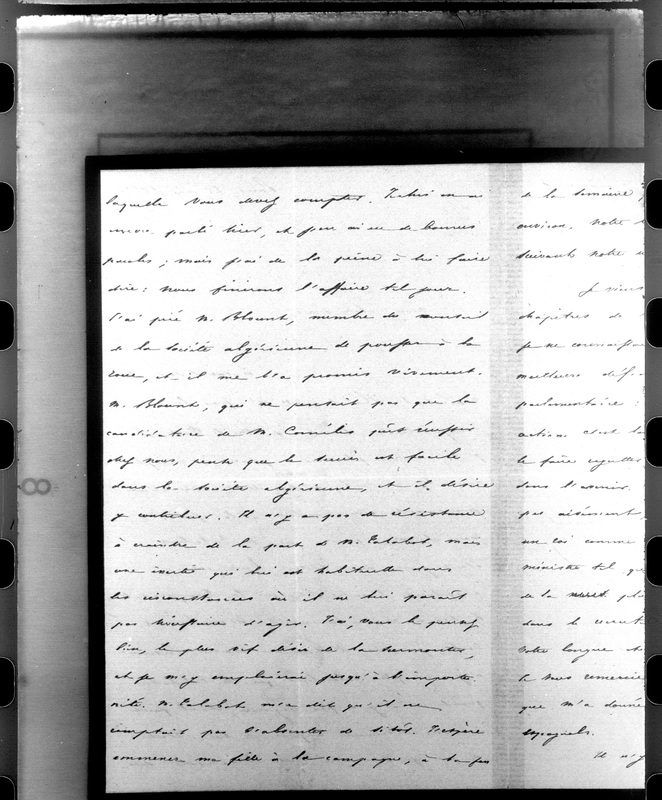 laquelle vous devez compter. Talabot m'en a
encore parlé hier, et j'en ai eu de bonnes
paroles ; mais j'ai de la peine à lui faire
dire : nous finirons l'affaire tel jour.
J'ai prié M. Blount, membre du conseil
de la société algérienne de pousser à la
roue, et il me l'a promis vivement.
M. Blount, qui ne pensait pas que la
candidature de M. Cornélis pût réussir
chez nous, pense que le succès est facile
dans la société algérienne, et il désire
y contribuer. Il n'y a pas de résistance
à craindre de la part de M. Talabot, mais
une inertie qui lui est habituelle dans
les circonstances où il ne lui paraît
pas nécessaire d'agir. J'ai, vous le pensez
bien, le plus vif désir de la surmonter,
et je m'y emploierai jusqu'à l'importu-
nité. M. Talabot m'a dit qu'il ne
comptait pas s'absenter de sitôt. J'espère
emmener ma fille à la campagne, à la fin
de la semaine
environ. Notre
suivants notre
Je viens
chapitres de
je ne connaissais
meilleure
parlementaire :
action. c'est
le faire regretter
dans l'avenir.
pas aisément,
un roi comme
ministre tel que
de la
dans le
votre langue et
Je vous remercie
que m'a donnée
espagnols.
Il n'y